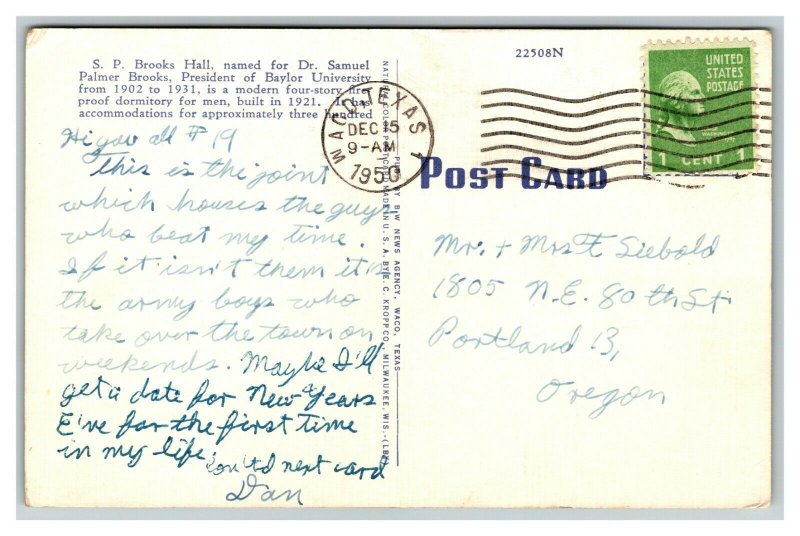 S. P. Brooks Hall, named for Dr. Samuel
Palmer Brooks, President of Baylor University
from 1902 to 1931, is a modern four-story fire
proof dormitory for men, built in 1921. It has
accommodations for approximately three hundred
Hi you all # 19
This is the joint
which houses the guys
who beat my time.
If it isn't them it's
the army boys who
take over the town on
weekends. Maybe I'll
get a date for New Years
E've for the first time
in my life.
con't'd next card
Dan
NATURAL COLOR POST CARD MADE IN U. S. A. BY E. C. KROPP CO., MILWAUKEE, WIS.
BY B/W NEWS AGENCY, WACO, TEXAS
WACO, TEXAS 1
DEC 15
9-AM
1950
22508N
UNITED
STATES
POSTAGE
WASHINGTON
1 CENT 1
POST CARD
Mr. + Mrs F Siebold
1805 N.E. 80th St.
Portland 13,
Oregon